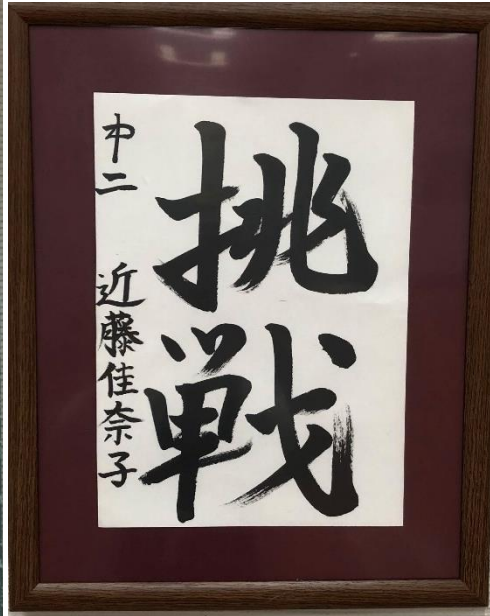 挑戦
中二 近藤佳奈子